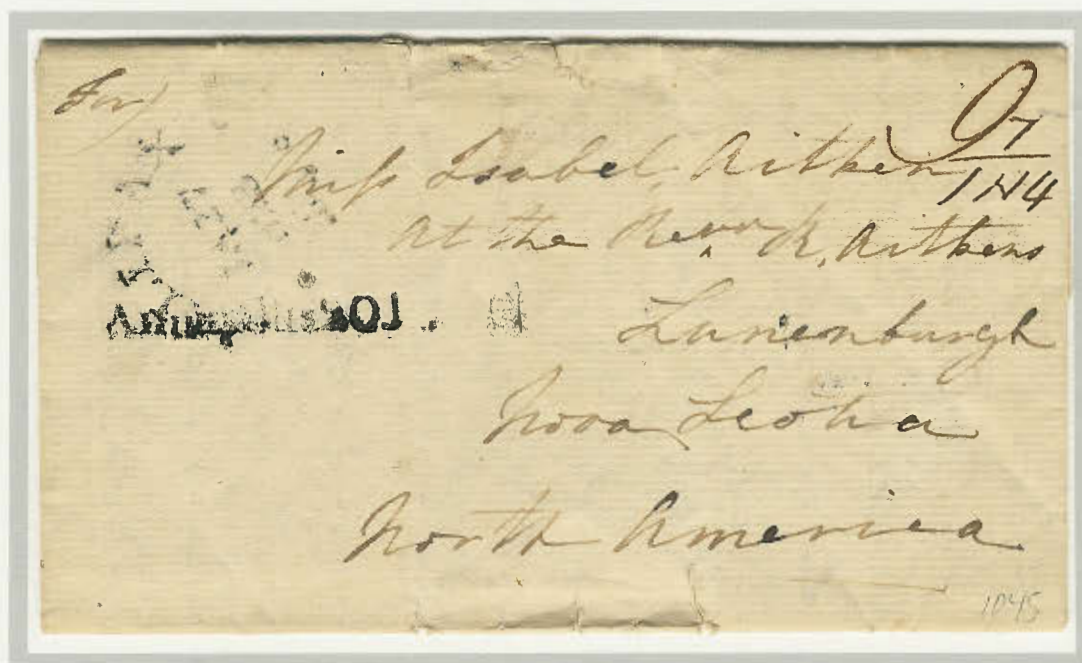 For
Miss Isabel Aitken
at the Revd R, Aitkens
Lunenburgh
Nova Scotia
North America
1N4
1045